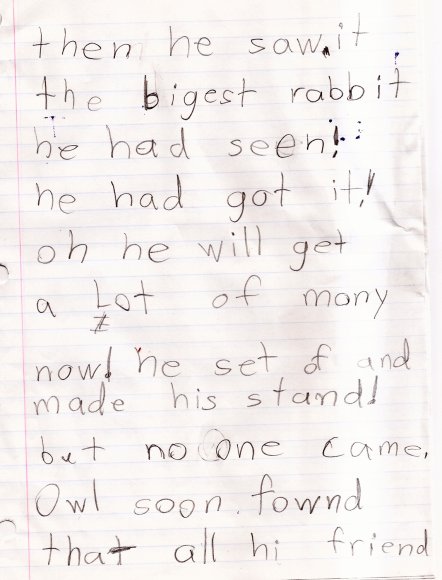 then he saw it
the bigest rabbit
he had seen!
he had got it!
oh he will get
a Lot of mony
now! he set of and
made his stand!
but no one came.
Owl soon fownd
that all hi friend